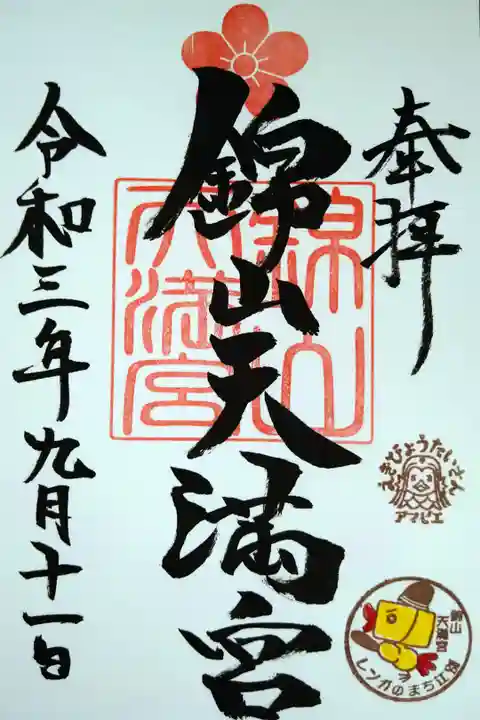 奉拝
錦山天満宮
錦山
天満宮
令和三年九月十一日
えきびょうたいさん
アマビエ
錦山
天満宮
レンガのまち江別